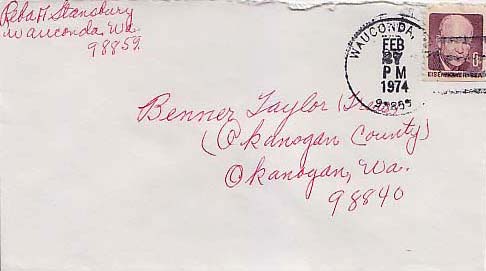 Reba H Stansbury
Wauconda, Wa.
98859
WAUCONDA,
FEB
27
PM
1974
98859
EISENHOWER USA
Benner Taylor (Treas.)
(Okanogan County)
Okanogan, Wa.
98840